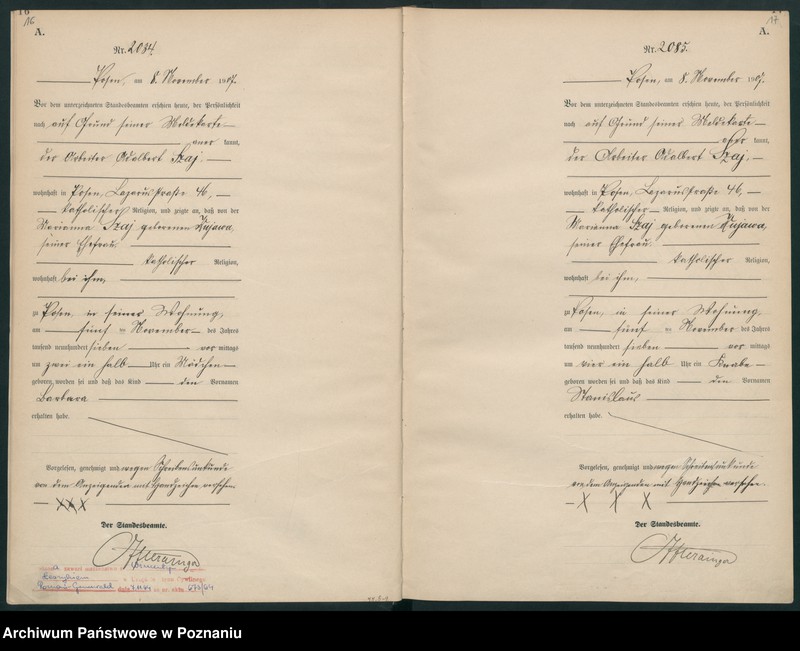 16
A.
Nr. 2084.
Posen, am 8. November 1907.
Vor dem unterzeichneten Standesbeamten erschien heute, der Persönlichkeit
nach auf Grund seiner Meldekarte
aner kannt,
der Arbeiter Adalbert Szaj,
wohnhaft in Posen, Lazarusstraße 46,
katholischer Religion, und zeigte an, daß von der
Marianna Szaj geborenen Kujawa,
seiner Ehefrau,
katholischer Religion,
wohnhaft bei ihm,
zu Posen, in seiner Wohnung,
am fünf ten November des Jahres
tausend neunhundert sieben vor mittags
um zwei ein halb Uhr ein Mädchen
geboren worden sei und daß das Kind den Vornamen
Barbara
erhalten habe.
Vorgelesen, genehmigt und wegen Schreibensunkunde
von dem Anzeigenden mit Handzeichen versehen.
XXX
Der Standesbeamte.
17
A.
Nr. 2085.
Posen, am 8. November 1907.
Vor dem unterzeichneten Standesbeamten erschien heute, der Persönlichkeit
nach auf Grund seiner Meldekarte
aner kannt,
der Arbeiter Adalbert Szaj,
wohnhaft in Posen, Lazarusstraße 46,
katholischer Religion, und zeigte an, daß von der
Marianna Szaj geborenen Kujawa,
seiner Ehefrau,
katholischer Religion,
wohnhaft bei ihm,
zu Posen, in seiner Wohnung,
am fünf ten November des Jahres
tausend neunhundert sieben vor mittags
um vier ein halb Uhr ein Knabe
geboren worden sei und daß das Kind den Vornamen
Stanislaus
erhalten habe.
Vorgelesen, genehmigt und wegen Schreibensunkunde
von dem Anzeigenden mit Handzeichen versehen.
X X X
Der Standesbeamte.
Archiwum Państwowe w Poznaniu